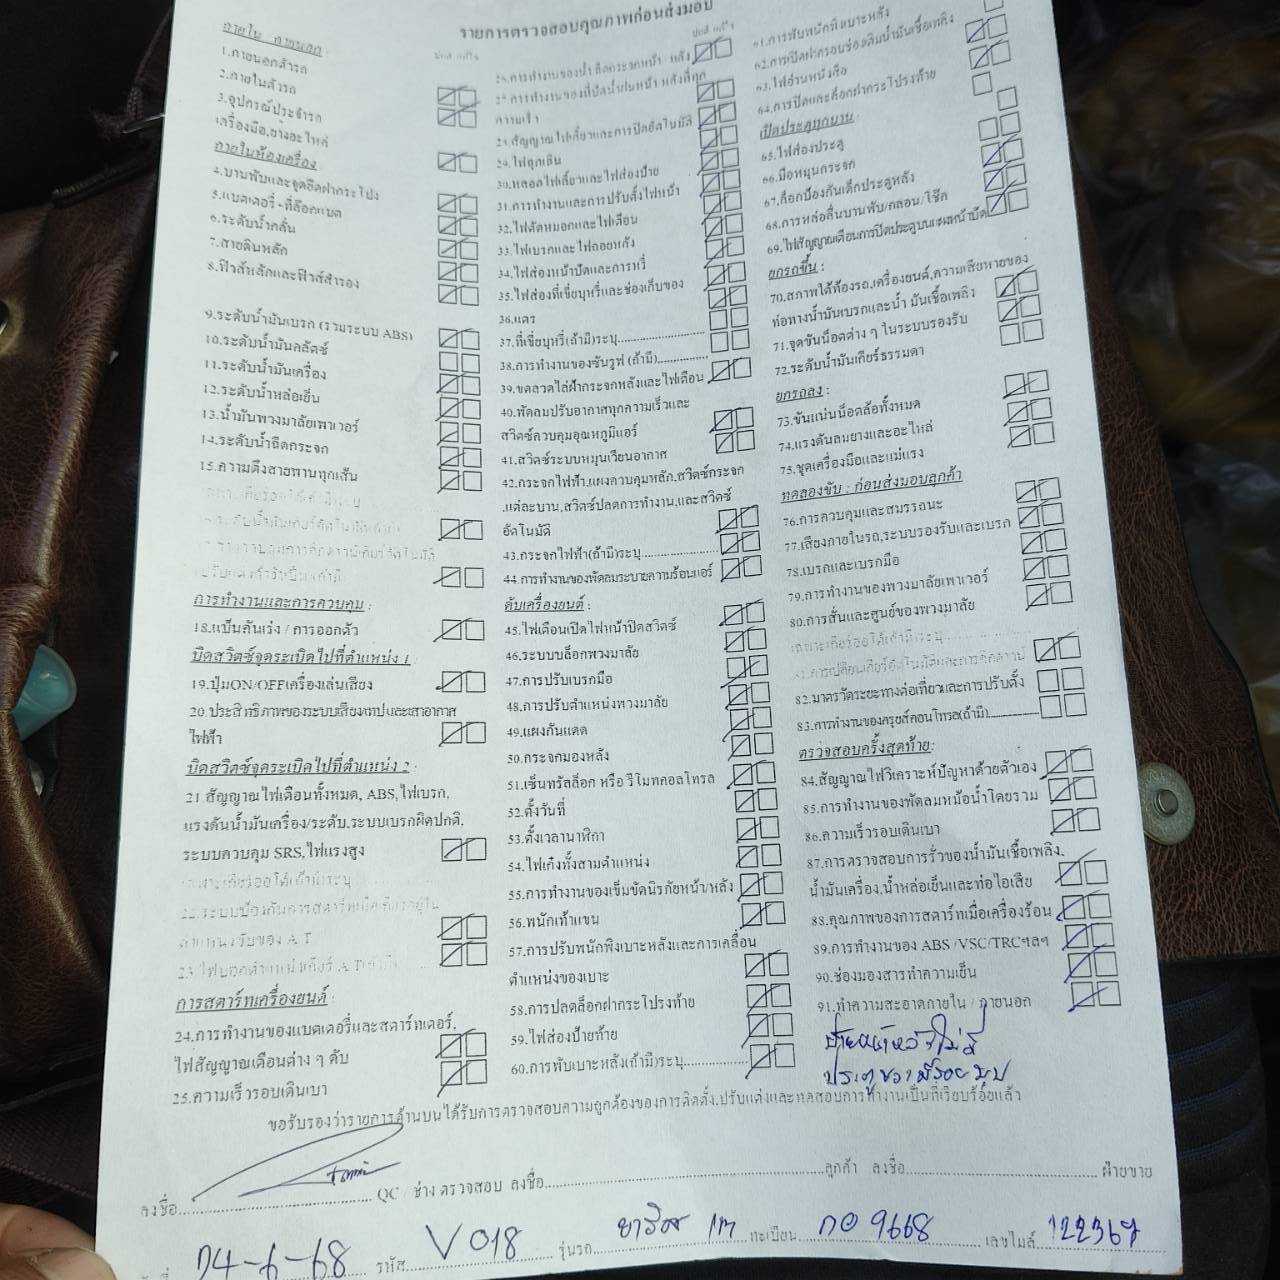 รายการตรวจสอบคุณภาพก่อนส่งมอบ
ภายใน ภายนอก :
1.ภายนอกตัวรถ
2.ภายในตัวรถ
3.อุปกรณ์ประจำรถ
เครื่องมือ,ยางอะไหล่
ภายในห้องเครื่อง
4.บานพับและจุดยึดฝากระโปรง
5.แบตเตอรี่-ที่ล็อกแบต
6.ระดับน้ำกลั่น
7.สายดินหลัก
8.ฟิวส์หลักและฟิวส์สำรอง
9.ระดับน้ำมันเบรก (รวมระบบ ABS)
10.ระดับน้ำมันคลัตช์
11.ระดับน้ำมันเครื่อง
12.ระดับน้ำหล่อเย็น
13.น้ำมันพวงมาลัยเพาเวอร์
14.ระดับน้ำฉีดกระจก
15.ความตึงสายพานทุกเส้น
การทำงานและการควบคุม :
18.แป้นคันเร่ง / การออกตัว
บิดสวิตช์จุดระเบิดไปที่ตำแหน่ง 1 :
19.ปุ่มON/OFFเครื่องเล่นเสียง
20.ประสิทธิภาพของระบบเสียงเทป และเสาอากาศ
ไฟฟ้า
บิดสวิตช์จุดระเบิดไปที่ตำแหน่ง 2 :
21 สัญญาณไฟเตือนทั้งหมด, ABS,ไฟเบรก,
แรงดันน้ำมันเครื่อง/ระดับ,ระบบเบรกผิดปกติ,
ระบบควบคุม SRS,ไฟแรงสูง
การสตาร์ทเครื่องยนต์ :
24.การทำงานของแบตเตอรี่และสตาร์ทเตอร์,
ไฟสัญญาณเตือนต่าง ๆ ดับ
25.ความเร็วรอบเดินเบา
26.การทำงานของน้ำฉีดกระจกหน้า หลัง
27.การทำงานของที่ปัดน้ำฝนหน้า หลังที่ทุก
ความเร็ว
28.สัญญาณไฟเลี้ยวและการปิดอัตโนมัติ
29.ไฟฉุกเฉิน
30.หลอดไฟเลี้ยวและไฟส่องป้าย
31.การทำงานและการปรับตั้งไฟหน้า
32.ไฟตัดหมอกและไฟเตือน
33.ไฟเบรกและไฟถอยหลัง
34.ไฟส่องหน้าปัดและการหรี่
35.ไฟส่องที่เขี่ยบุหรี่และช่องเก็บของ
36.แตร
37.ที่เขี่ยบุหรี่(ถ้ามี)ระบุ
38.การทำงานของซันรูฟ (ถ้ามี)
39.ขดลวดไล่ฝ้ากระจกหลังและไฟเตือน
40.พัดลมปรับอากาศทุกความเร็วและ
สวิตช์ควบคุมอุณหภูมิแอร์
41.สวิตช์ระบบหมุนเวียนอากาศ
42.กระจกไฟฟ้า,แผงควบคุมหลัก,สวิตช์กระจก
แต่ละบาน,สวิตช์ปลดการทำงาน,และสวิตช์
อัตโนมัติ
43.กระจกไฟฟ้า(ถ้ามี)ระบุ
44.การทำงานของพัดลมระบายความร้อนแอร์
ดับเครื่องยนต์ :
45.ไฟเตือนเปิดไฟหน้าปิดสวิตช์
46.ระบบบล็อกพวงมาลัย
47.การปรับเบรกมือ
48.การปรับตำแหน่งพวงมาลัย
49.แผงกันแดด
50.กระจกมองหลัง
51.เซ็นทรัลล็อก หรือ รีโมทคอลโทรล
52.ตั้งวันที่
53.ตั้งเวลานาฬิกา
54.ไฟเก๋งทั้งสามตำแหน่ง
55.การทำงานของเข็มขัดนิรภัยหน้า/หลัง
56.พนักเท้าแขน
57.การปรับพนักพิงเบาะหลังและการเคลื่อน
ตำแหน่งของเบาะ
58.การปลดล็อกฝากระโปรงท้าย
59.ไฟส่องป้ายท้าย
60.การพับเบาะหลัง(ถ้ามี)ระบุ
61.การพับพนักพิงเบาะหลัง
62.การเปิดฝาครอบช่องเติมน้ำมันเชื้อเพลิง
63.ไฟอ่านหนังสือ
64.การปิดและล็อกฝากระโปรงท้าย
เปิดประตูทุกบาน :
65.ไฟส่องประตู
66.มือหมุนกระจก
67.ล็อกป้องกันเด็กประตูหลัง
68.การหล่อลื่นบานพับ/กลอน/โช๊ค
69.ไฟสัญญาณเตือนการปิดประตูบนแผงหน้าปัด
ยกรถขึ้น :
70.สภาพใต้ท้องรถ,เครื่องยนต์,ความเสียหายของ
ท่อทางน้ำมันเบรกและน้ำ มันเชื้อเพลิง
71.จุดขันน็อตต่าง ๆ ในระบบรองรับ
72.ระดับน้ำมันเกียร์ธรรมดา
ยกรถลง :
73.ขันแน่นน็อตล้อทั้งหมด
74.แรงดันลมยางและอะไหล่
75.ชุดเครื่องมือและแม่แรง
ทดลองขับ : ก่อนส่งมอบลูกค้า
76.การควบคุมและสมรรถนะ
77.เสียงภายในรถ,ระบบรองรับและเบรก
78.เบรกและเบรกมือ
79.การทำงานของพวงมาลัยเพาเวอร์
80.การสั่นและศูนย์ของพวงมาลัย
82.มาตรวัดระยะทางต่อเที่ยวและการปรับตั้ง
83.การทำงานของครูยส์คอนโทรล(ถ้ามี)
ตรวจสอบครั้งสุดท้าย:
84.สัญญาณไฟวิเคราะห์ปัญหาด้วยตัวเอง
85.การทำงานของพัดลมหม้อน้ำโดยรวม
86.ความเร็วรอบเดินเบา
87.การตรวจสอบการรั่วของน้ำมันเชื้อเพลิง,
น้ำมันเครื่อง,น้ำหล่อเย็นและท่อไอเสีย
88.คุณภาพของการสตาร์ทเมื่อเครื่องร้อน
89.การทำงานของ ABS /VSC/TRCฯลฯ
90.ช่องมองสารทำความเย็น
91.ทำความสะอาดภายใน / ภายนอก
ป้ายหน้าหลังไม่มี
ประตูขวามีรอยบุบ
ขอรับรองว่ารายการด้านบนได้รับการตรวจสอบความถูกต้องของการติดตั้ง,ปรับแต่งและทดสอบการทำงานเป็นที่เรียบร้อยแล้ว
ลงชื่อ QC / ช่าง ตรวจสอบ ลงชื่อ ลูกค้า ลงชื่อ ฝ่ายขาย
04-6-68 รหัส V018 รุ่นรถ ยาริส เทา ทะเบียน กอ 9668 เลขไมล์ 122367